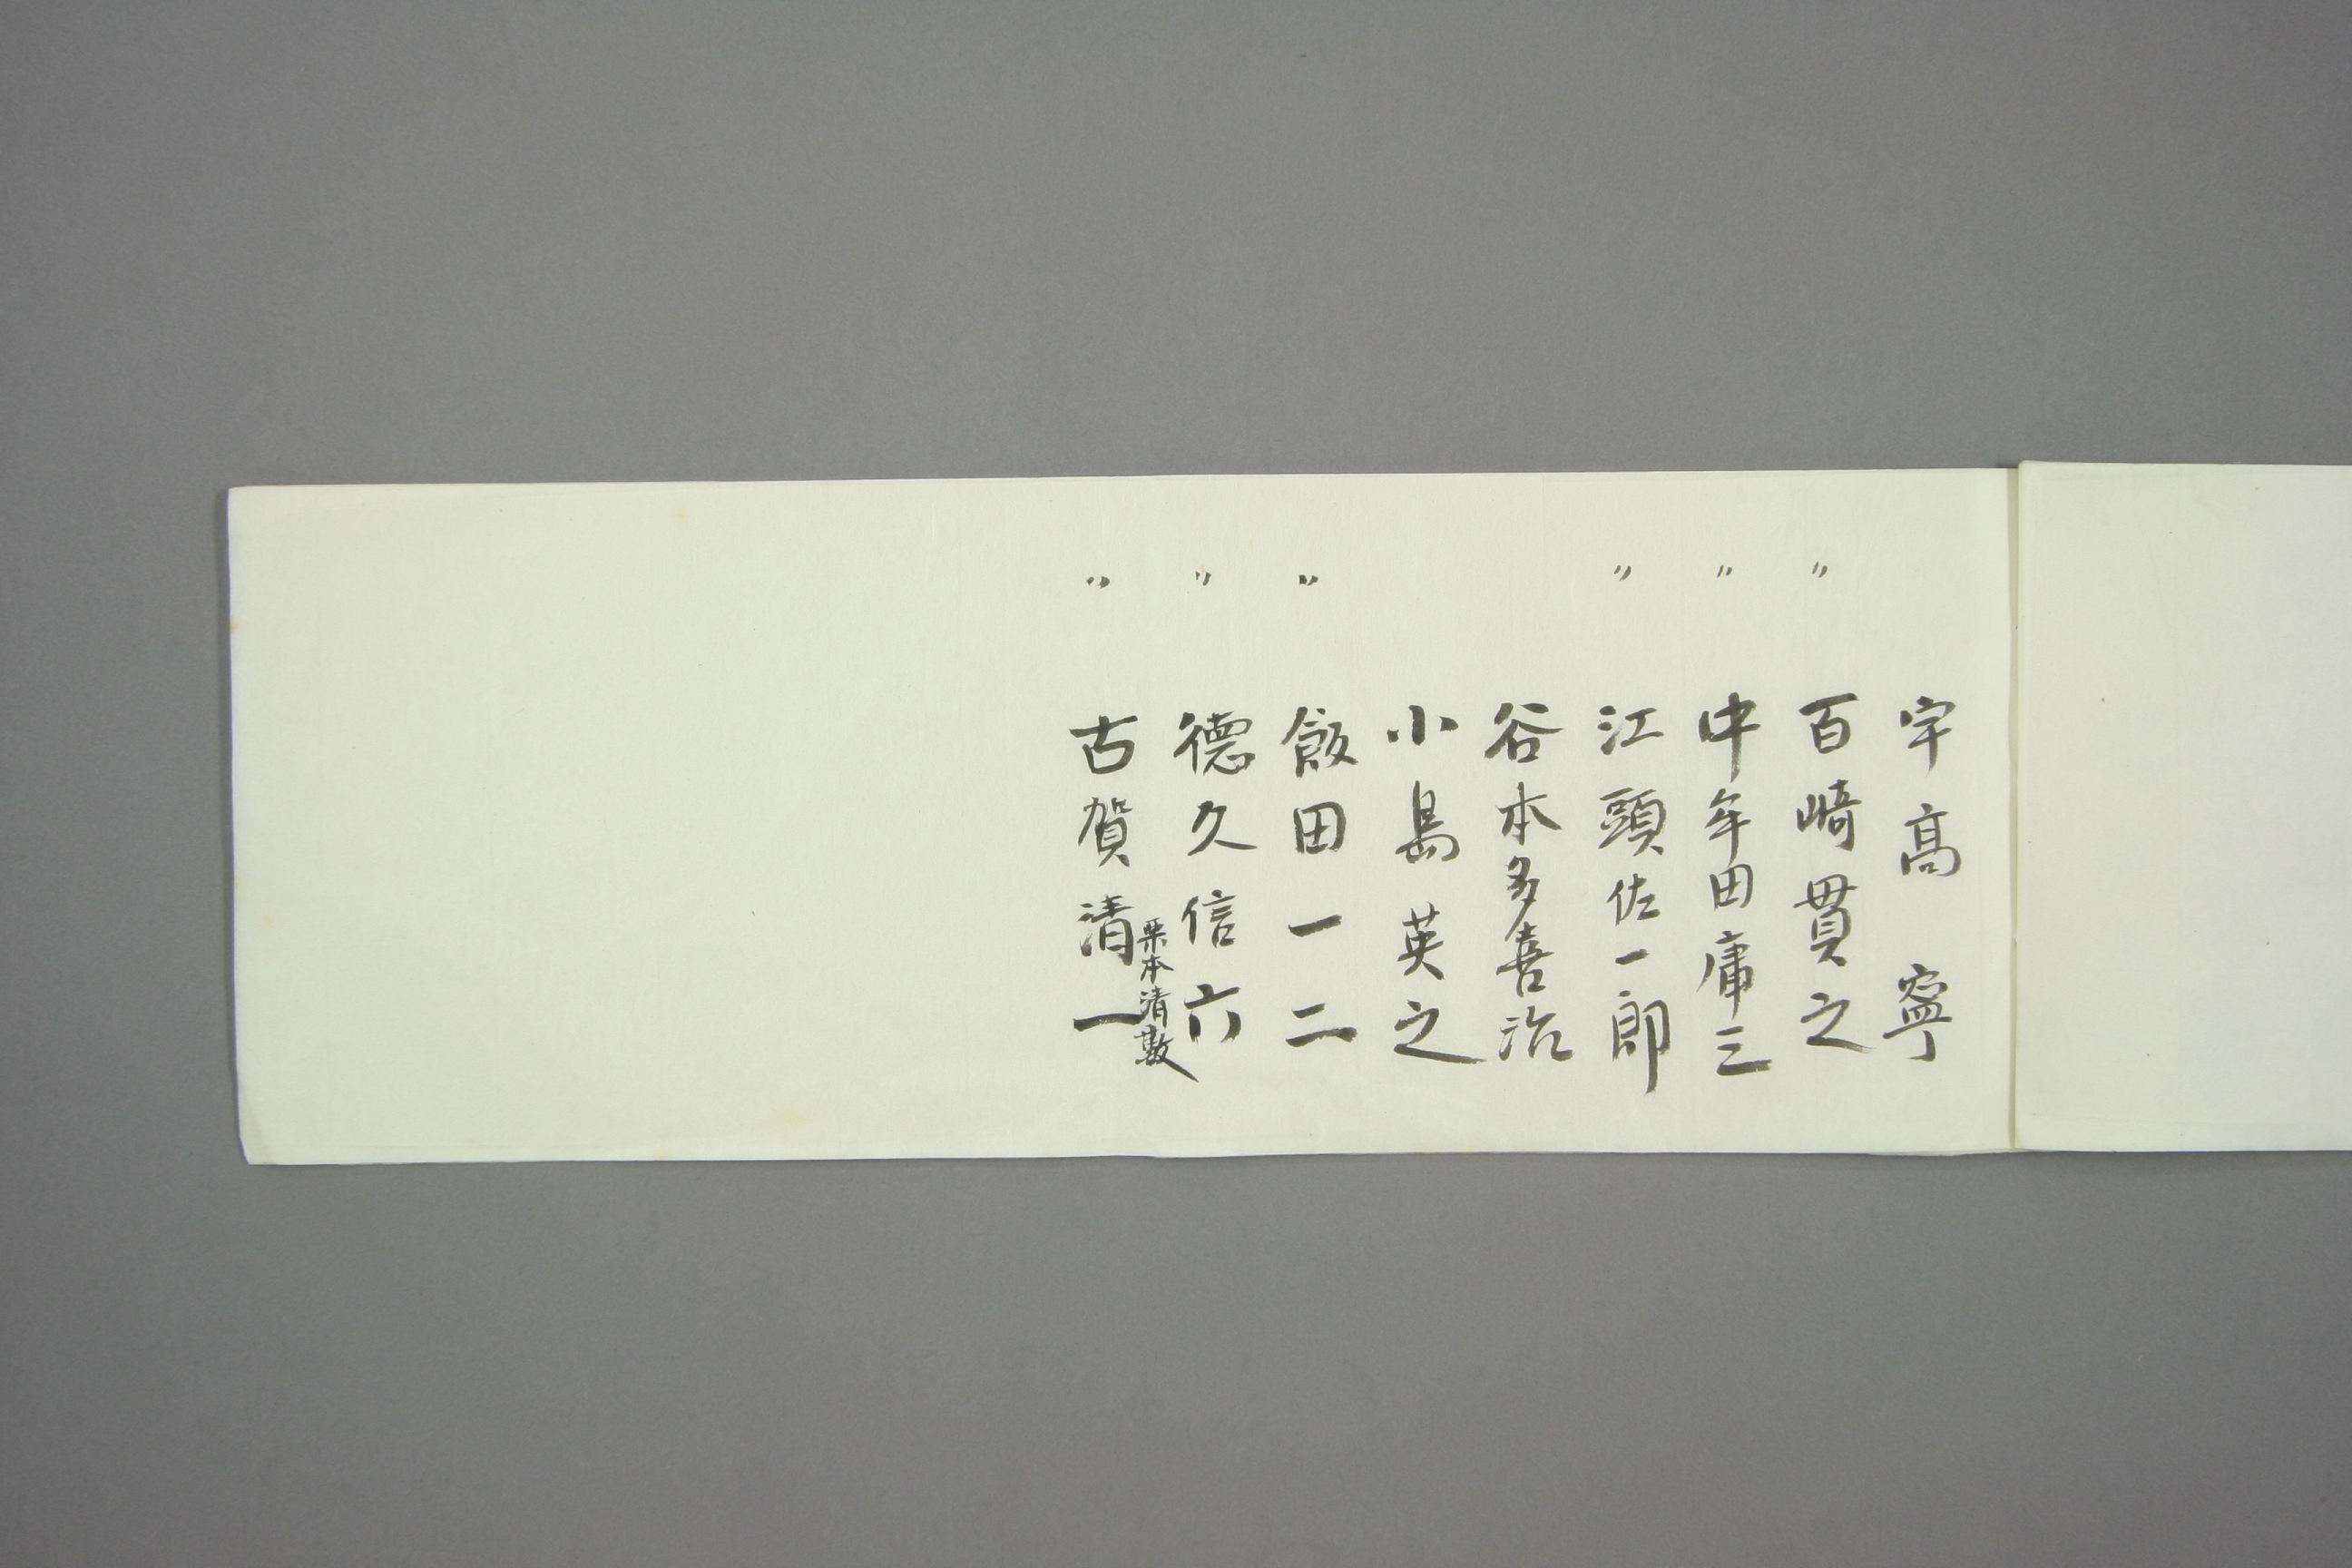 宇高寧
〃 百崎貫之
〃 中牟田庸三
〃 江頭佐一郎
谷本多喜治
小島英之
〃 飯田一二
〃 德久信六
栗本清数
〃 古賀清一